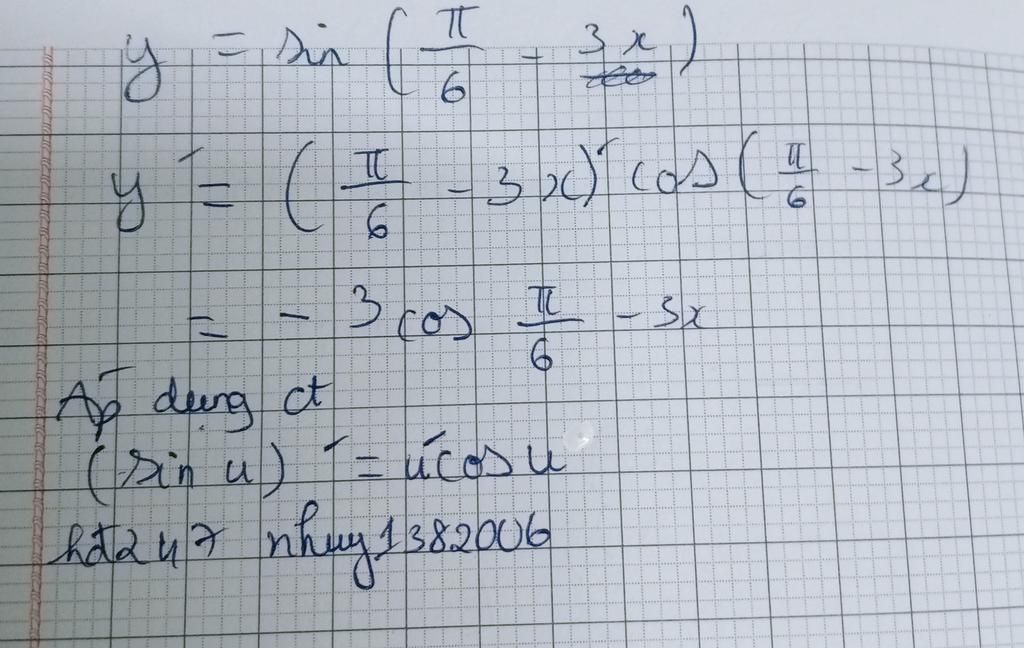 y = sin (π/6 - 3x)
y' = (π/6 - 3x)' cos (π/6 - 3x)
= - 3 cos π/6 - 3x
Áp dụng ct
(sin u)' = u'cos u
hdt247 nhuy1382006